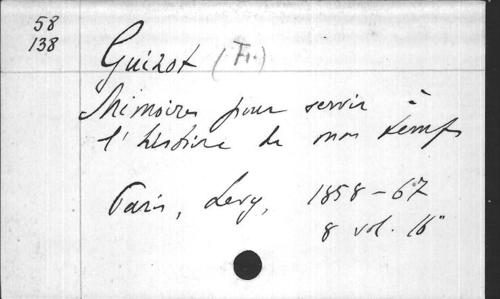 58
138
Guizot (Fr.)
Mémoires pour servir à
l'histoire de mon temps
Paris, Levy, 1858-67
8 vol. 16°